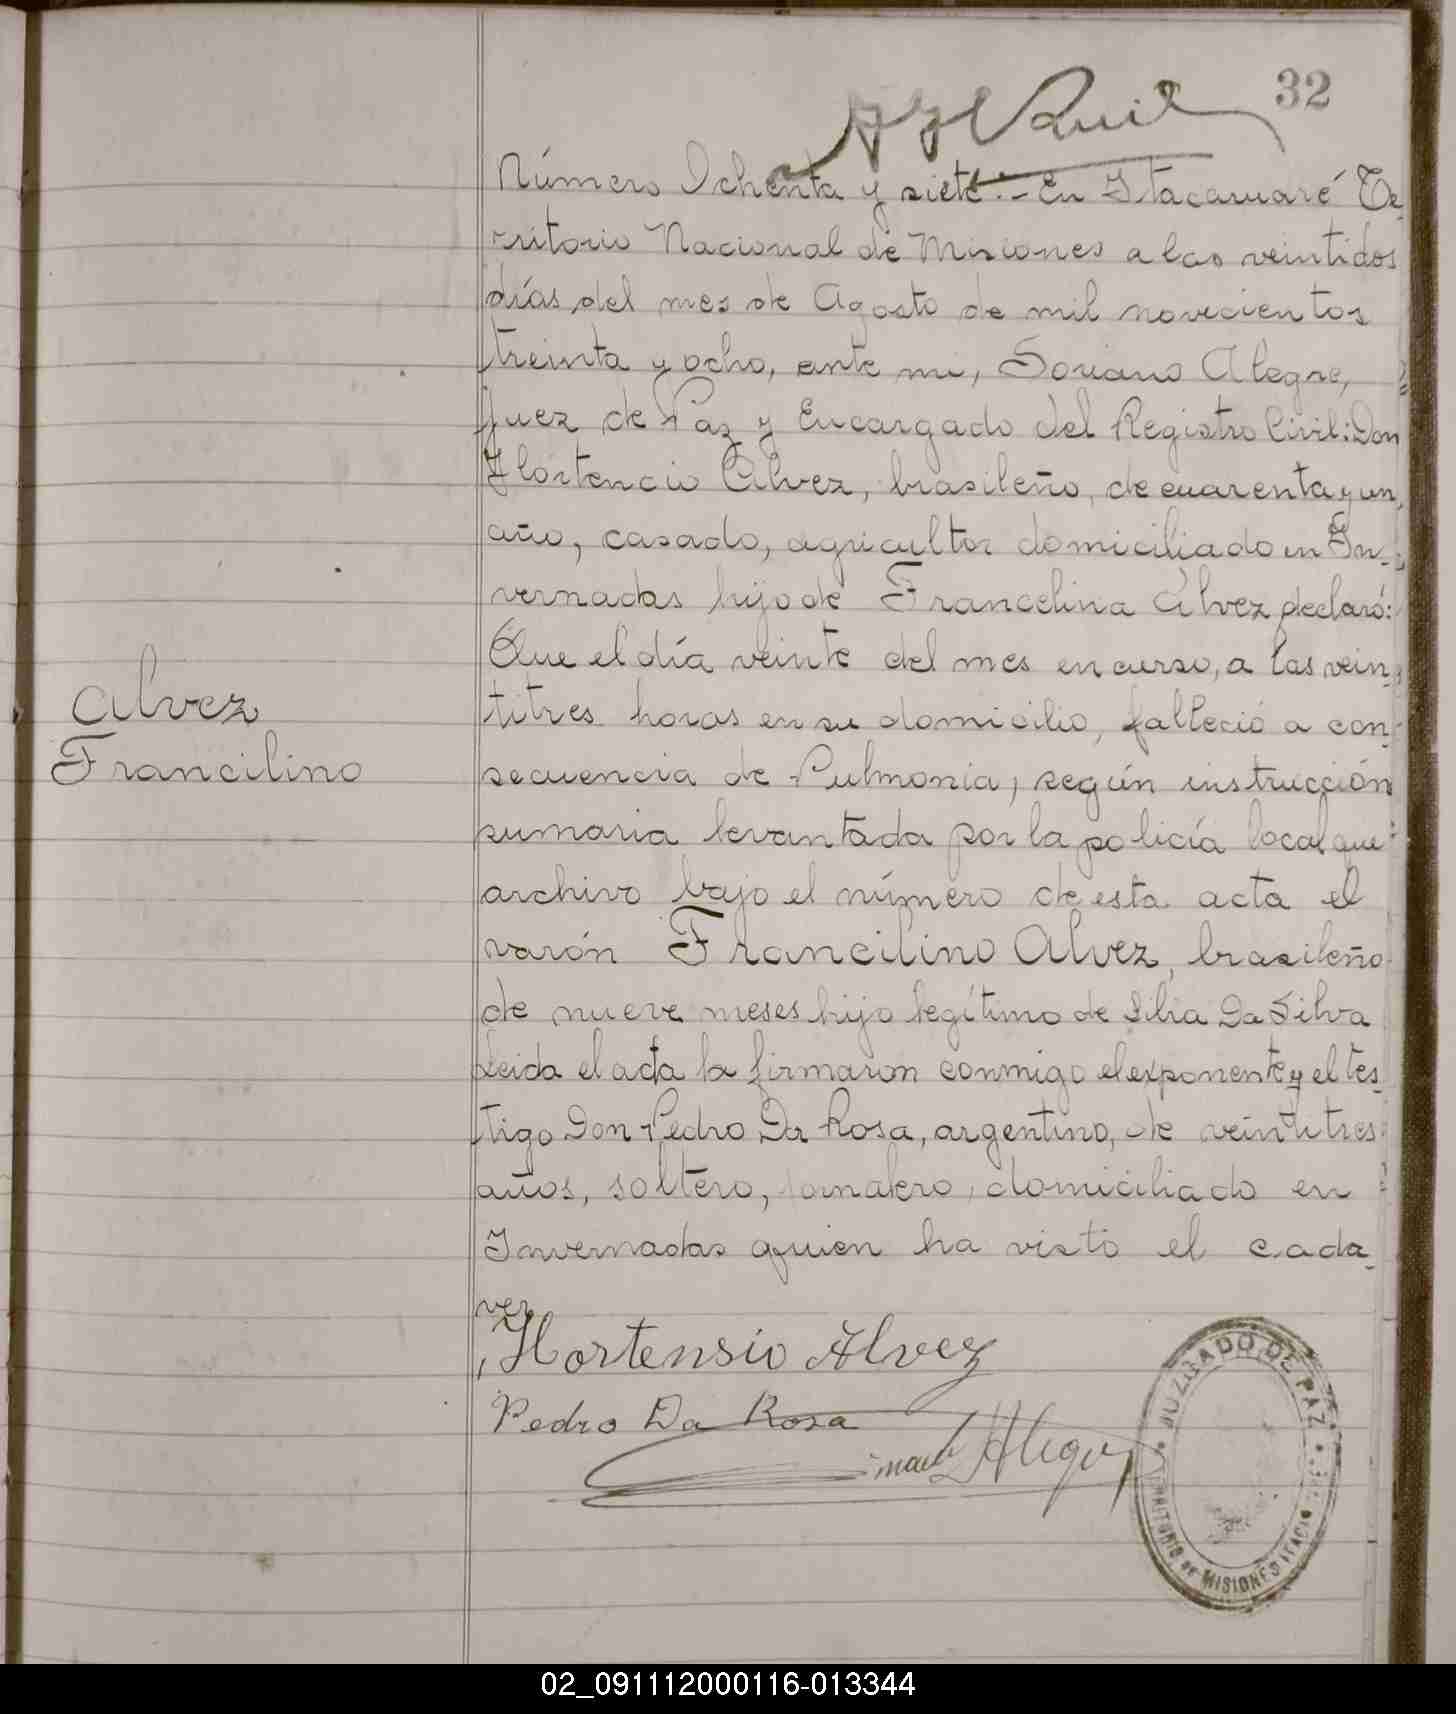 32
Número Ochenta y siete.- En Itacaruaré Te-
rritorio Nacional de Misiones a los veintidos
días del mes de Agosto de mil novecientos
treinta y ocho, ante mi, Soriano Alegre,
juez de Paz y Encargado del Registro Civil: Don
Hortencio Alvez, brasileño, de cuarenta y un
año, casado, agricultor domiciliado en In-
vernadas hijo de Francelina Alvez declaró:
Que el día veinte del mes en curso, a las vein-
titres horas en su domicilio, falleció a con-
secuencia de Pulmonia, según instrucción
sumaria levantada por la policía local que
archivo bajo el número de esta acta el
varón Francilino Alvez, brasileño
de nueve meses hijo legítimo de Silia Da Silva
Leida el acta la firmaron conmigo el exponente y el tes-
tigo Don Pedro Da Rosa, argentino, de veintitres
años, soltero, jornalero, domiciliado en
Invernadas quien ha visto el cada-
ver
Alvez
Francilino
Hortensio Alvez
Pedro Da Rosa
JUZGADO DE PAZ
TERRITORIO DE MISIONES
02_091112000116-013344